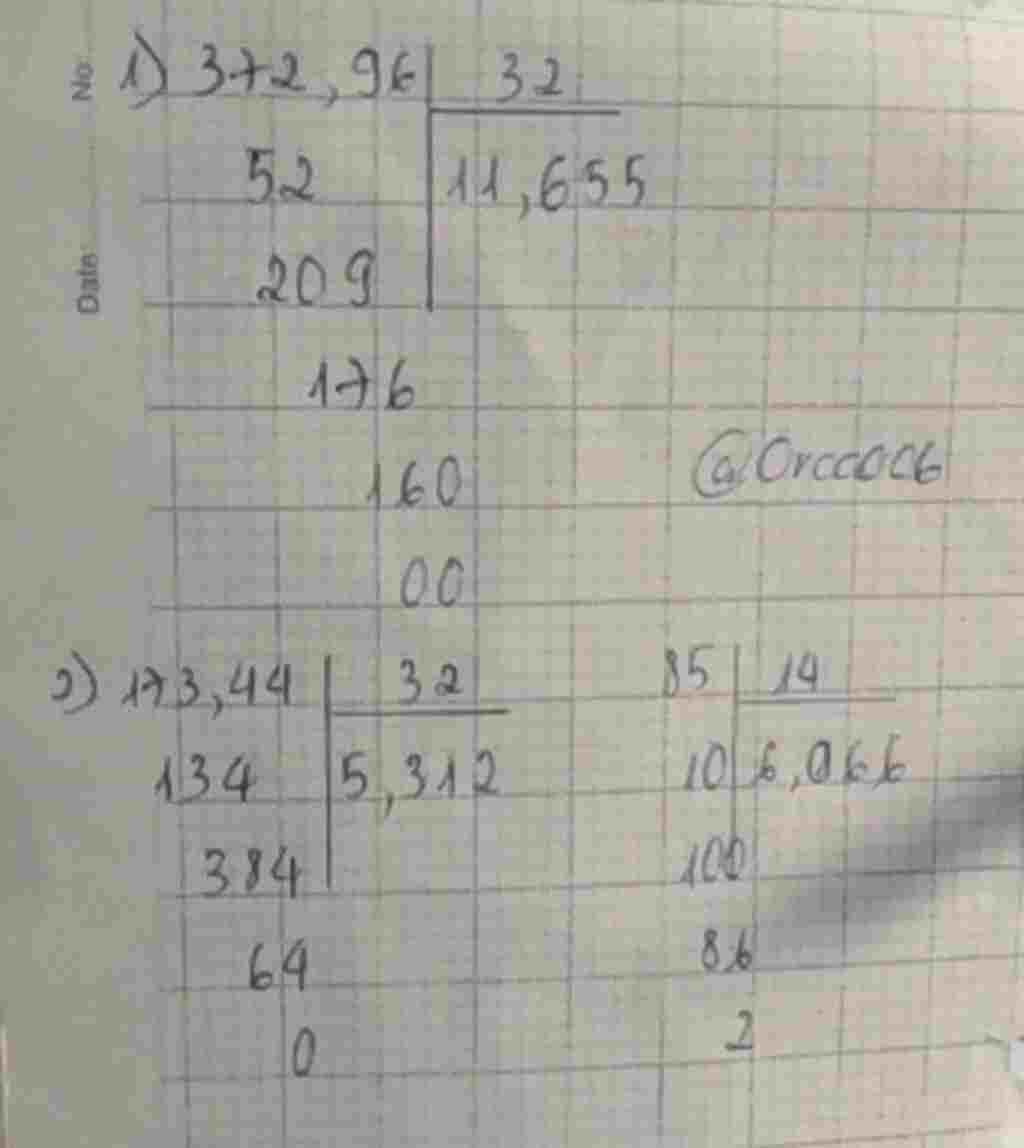 No
Date
1) 372,96 32
52 11,655
209
176
160
@Orccoc6
00
2) 173,44 32
134 5,312
384
64
0
85 14
10 6,066
100
86
2